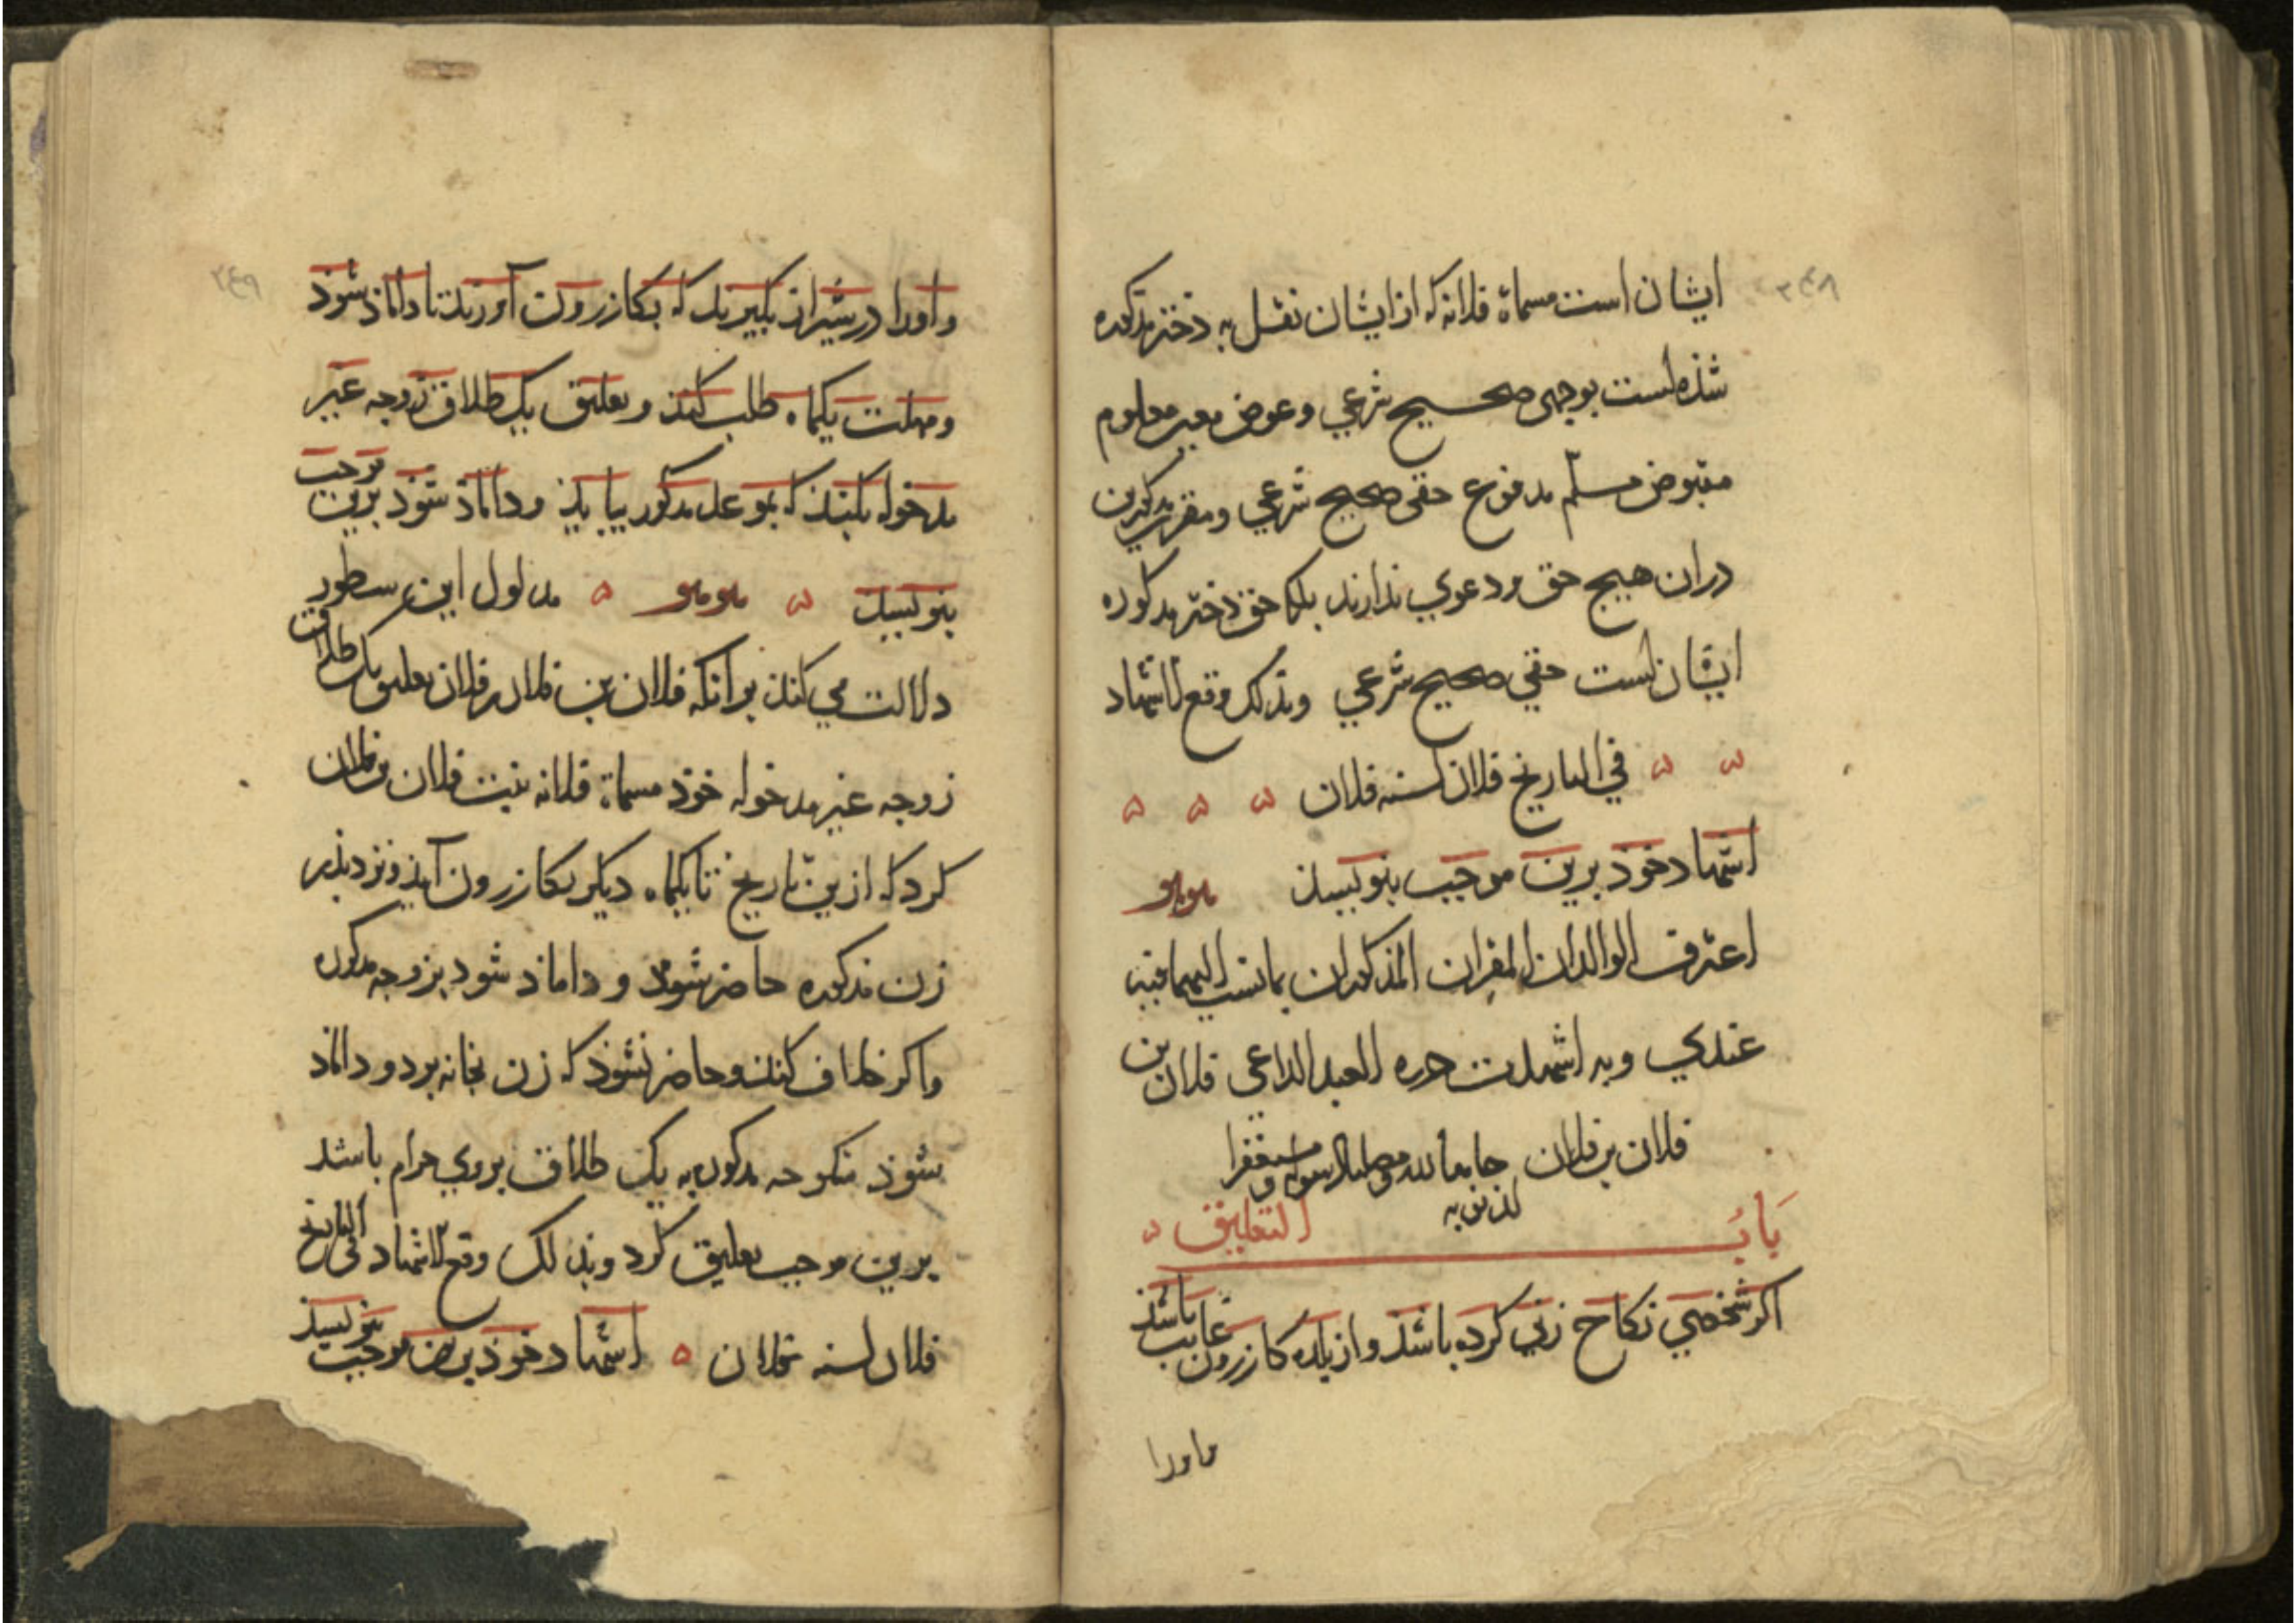 ۲۴۸
ایشان است مسماة فلانه که از ایشان نقل به دختر مذکوره
شذه است بوجهی صحیح شرعي و عوض معین معلوم
مقبوض مسلّم مدفوع حقی صحیح شرعي و مقرین مذکورین
دران هیچ حق و دعوي ندارند بلکه حق دختر مذکوره
ایشان است حقي صحیح شرعي و بذلک وقع الاشهاد
في التاریخ فلان لسنه فلان
اشهاد خوذ برین موجب بنویسذ
اعترف الوالدان المقران المذکوران بما نسب الیهما فیه
عندي و به اشهدت حرره العبد الداعی فلان بن
فلان بن فلان حامدا لله و مصلیا لرسوله و مستغفرا
لذنوبه
بابُ التعلیق
اکر شخصي نکاح زني کرده باشذ و از بلده کازرون غایب باشذ
و اورا
۲۴۹
و اورا در شیراز بکیرند که بکازرون آورند تا داماذ شوذ
و مهلت یکماه طلب کند و تعلیق یک طلاق زوجه غیر
مدخوله بکند که بموعد مذکور بیایذ و داماذ شوذ برین موجب
بنویسد مدلول این سطور
دلالت مي کند برانکه فلان بن فلان بن فلان تعلیق یک طلاق
زوجه غیر مدخوله خوذ مسماة فلانه بنت فلان بن فلان
کرد که ازین تاریخ تا یکماه دیکر بکازرون آید و نزد پذر
زن مذکوره حاضر شود و داماذ شود بزوجه مذکوره
و اکر خلاف کند و حاضر نشوذ که زن بخانه برد و داماد
شوذ منکوحه مذکوره به یک طلاق بروي حرام باشد
برین موجب تعلیق کرد و بذلک وقع الاشهاد في التاریخ
فلان لسنه فلان اشهاد خوذ برین موجب بنویسذ